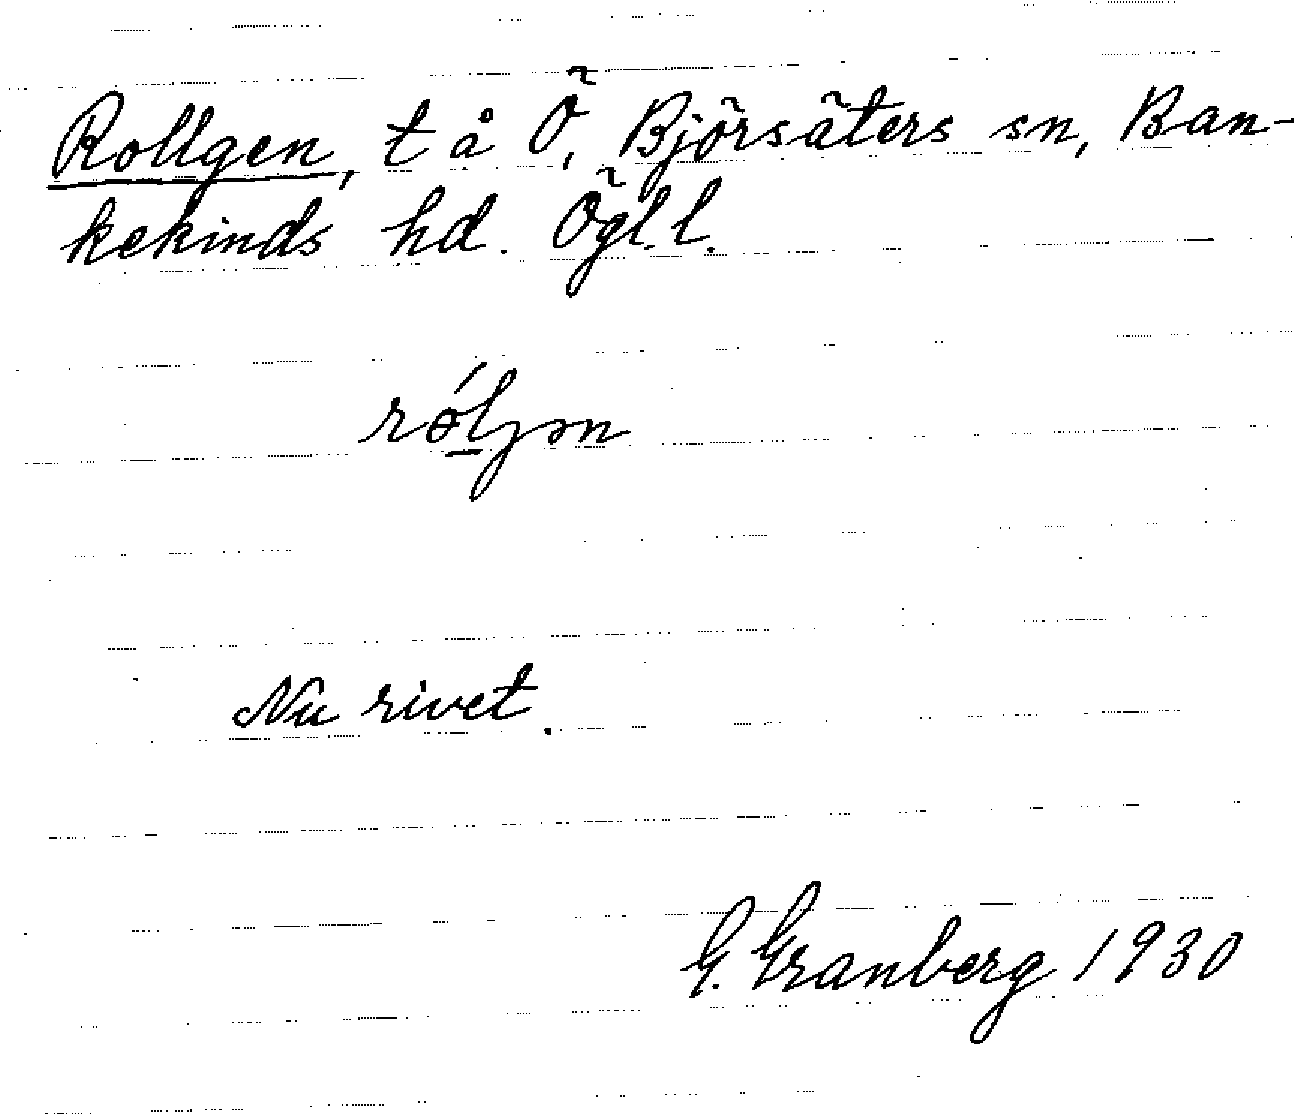 Rollgen, t å Ö, Björsäters sn, Ban-
kekinds hd. Ögl.l.
ról̠jən
Nu rivet.
G. Granberg 1930